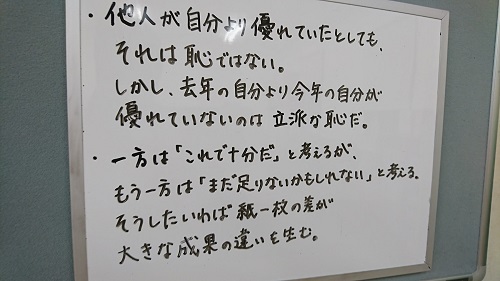 ・他人が自分より優れていたとしても、
それは恥ではない。
しかし、去年の自分より今年の自分が
優れていないのは立派な恥だ。
・一方は「これで十分だ」と考えるが、
もう一方は「まだ足りないかもしれない」と考える。
そうしたいわば紙一枚の差が
大きな成果の違いを生む。